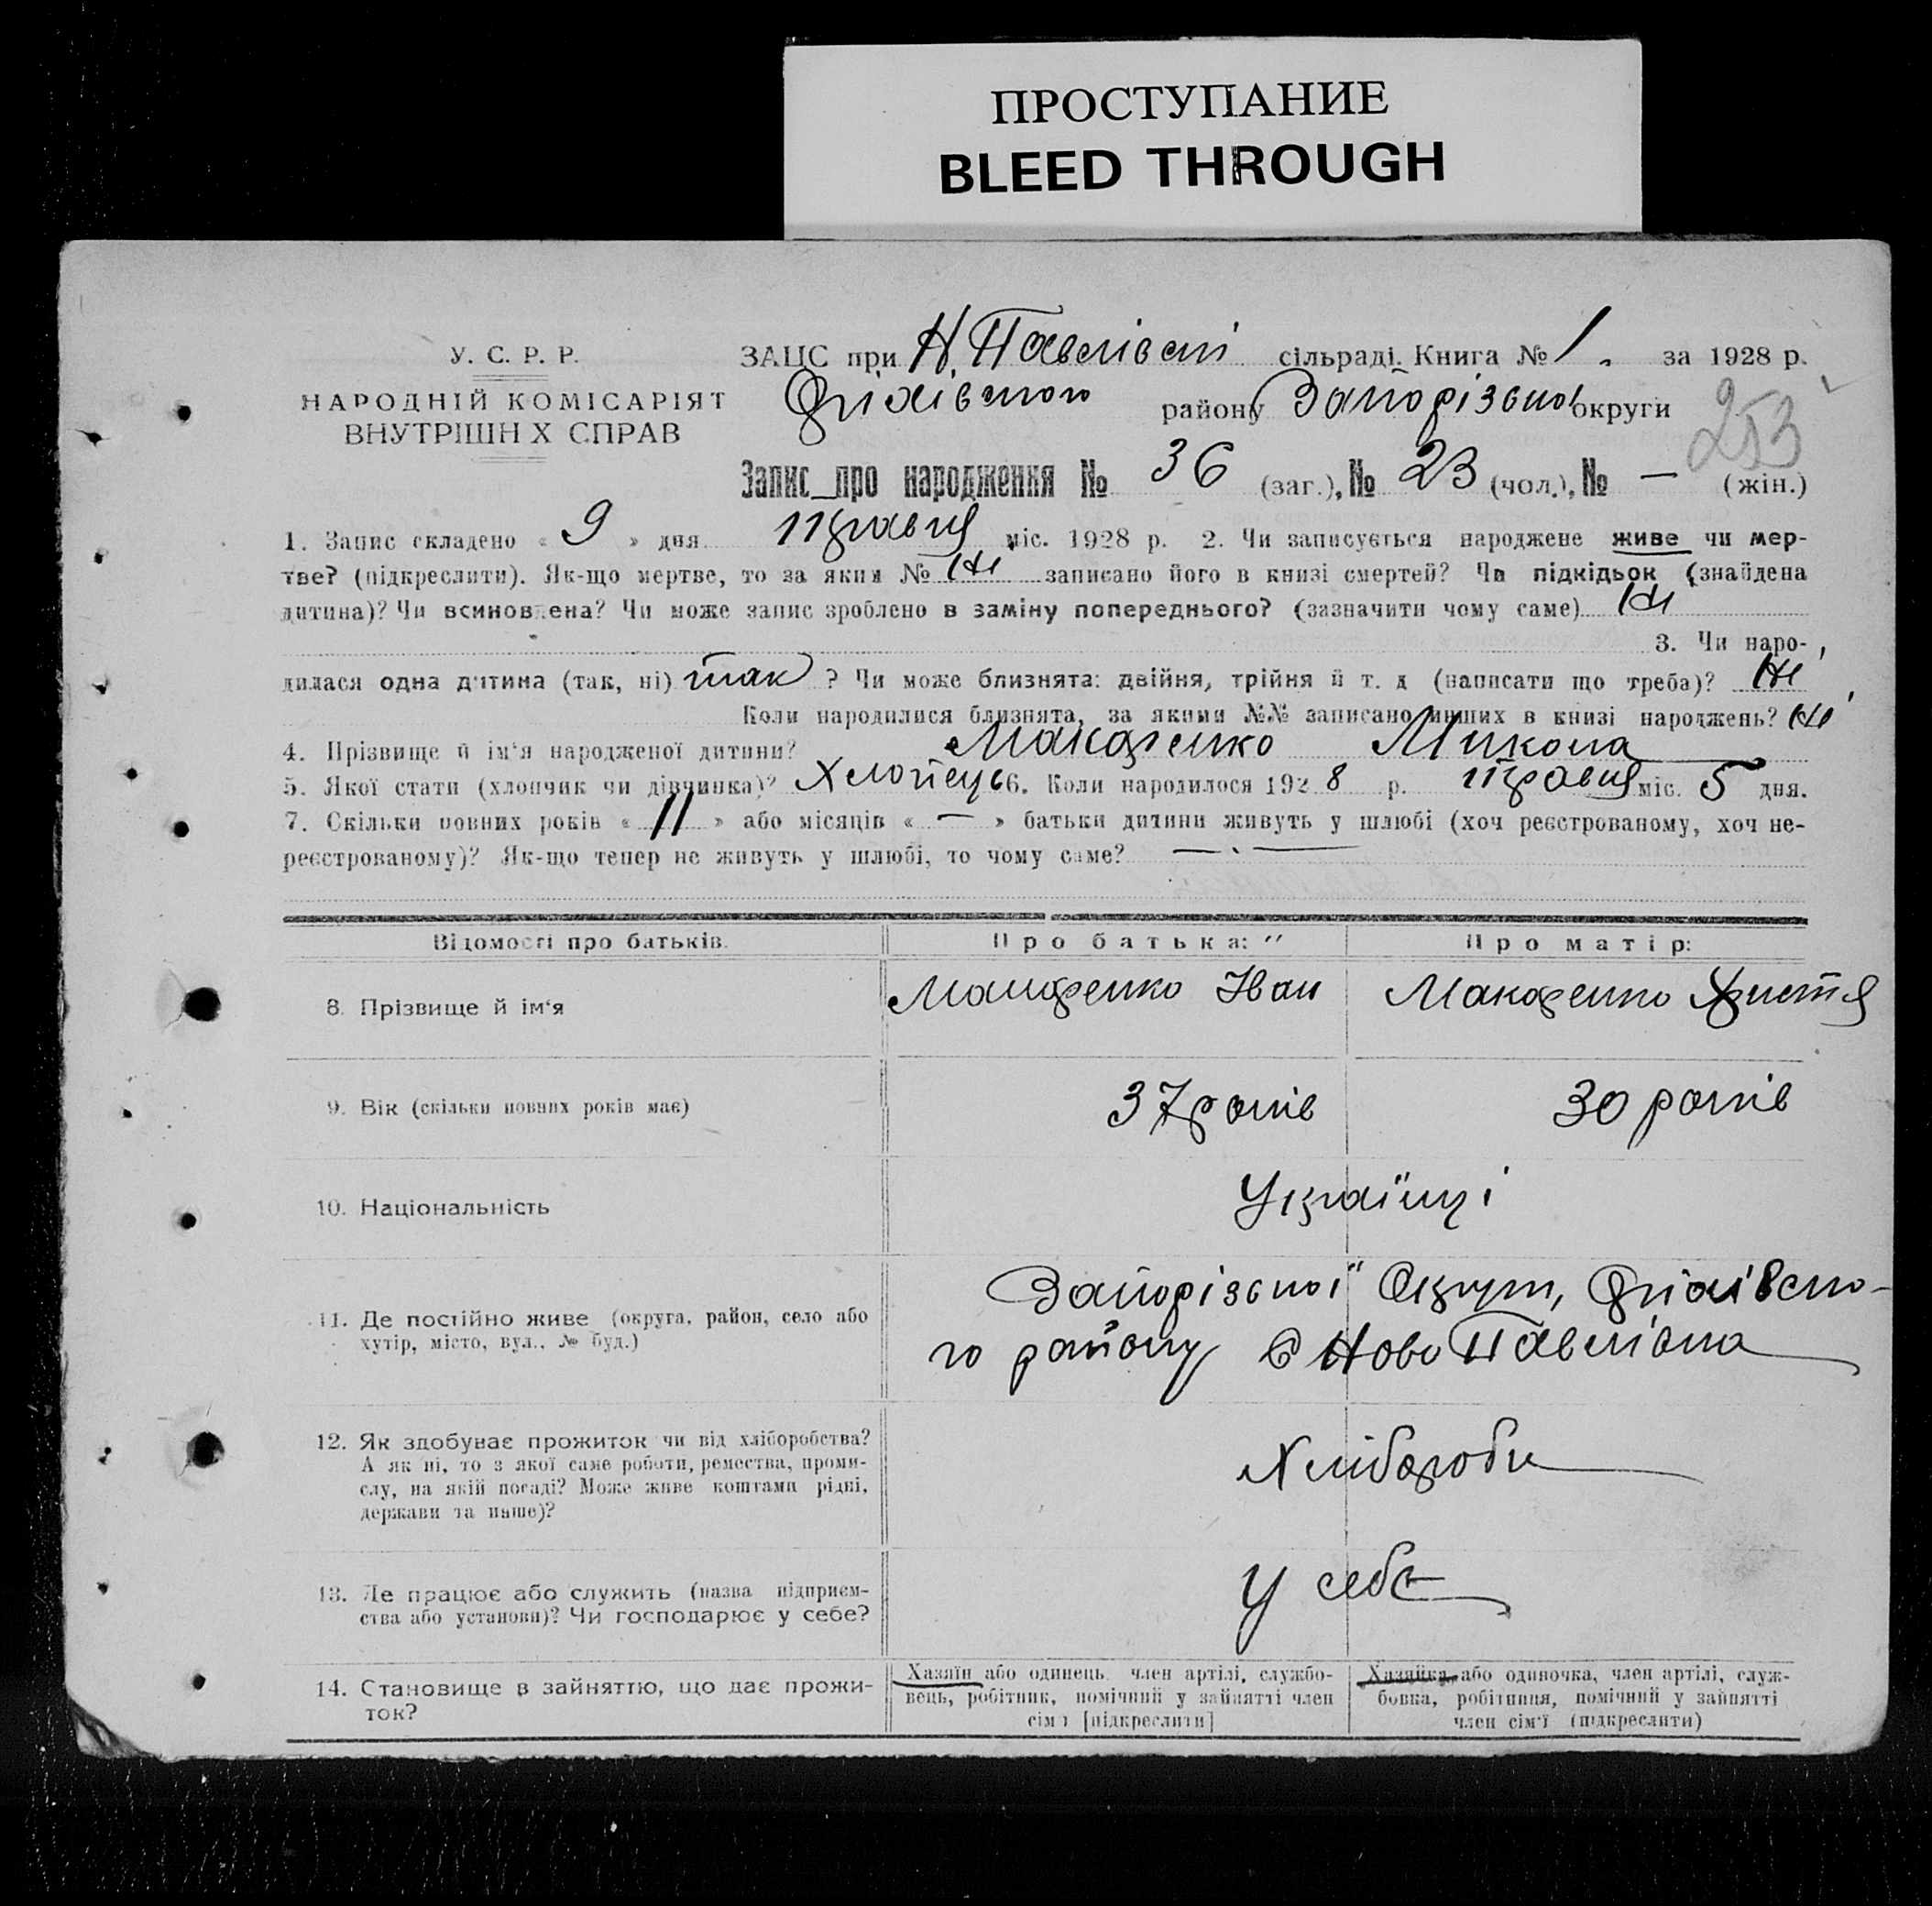 ПРОСТУПАНИЕ
BLEED THROUGH
У. С. Р. Р.
НАРОДНІЙ КОМІСАРІЯТ
ВНУТРІШН Х СПРАВ
ЗАЦС при Н. Павлівскі сільраді. Книга № 1. за 1928 р.
району Запорізької округи
253
Запис про народження № 36 (заг.), № 23 (чол.), № — (жін.)
1. Запис складено « 9 » дня травня міс. 1928 р. 2. Чи записується народжене живе чи мер-
тве? (підкреслити). Як-що мертве, то за яким № ні записано його в книзі смертей? Чи підкідьок (знайдена
дитина)? Чи всиновлена? Чи може запис зроблено в заміну попереднього? (зазначити чому саме) ні
3. Чи наро-
дилася одна дитина (так, ні) так ? Чи може близнята: двійня, трійня й т. д (написати що треба)? ні
Коли народилися близнята, за якими №№ записано инших в книзі народжень? ні
4. Прізвище й ім'я народженої дитини? Макаренко Микола
5. Якої стати (хлопчик чи дівчинка)? Хлопець 6. Коли народилося 1928 р. травня міс. 5 дня.
7. Скільки повних років « 11 » або місяців « — » батьки дитини живуть у шлюбі (хоч реєстрованому, хоч не-
реєстрованому)? Як-що тепер не живуть у шлюбі, то чому саме? —
Відомості про батьків.
Про батька:
Про матір:
8. Прізвище й ім'я
Макаренко Іван
Макаренко Христя
9. Вік (скільки повних років має)
37 років
30 років
10. Національність
Українці
11. Де постійно живе (округа, район, село або
хутір, місто, вул., № буд.)
Запорізької Округи,
го району с Ново Павлівка
12. Як здобуває прожиток чи від хліборобства?
А як ні, то з якої саме роботи, ремества, проми-
слу, на якій посаді? Може живе коштами рідні,
держави та инше)?
Хлібороби
13. Де працює або служить (назва підприєм-
ства або установи)? Чи господарює у себе?
У себе
14. Становище в зайняттю, що дає прожи-
ток?
Хазяїн або одинець член артілі, службо-
вець, робітник, помічний у зайнятті член
сім'ї [підкреслити]
Хазяйка або одиночка, член артілі, служ-
бовка, робітниця, помічний у зайнятті
член сім'ї (підкреслити)